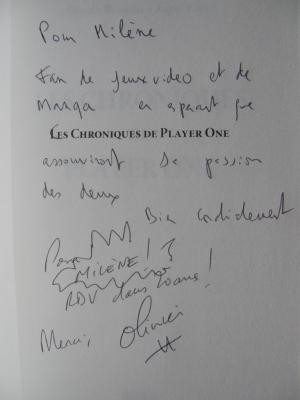 Pour Milène
Fan de jeux video et de
Manga en espérant que
LES CHRONIQUES DE PLAYER ONE
assouviront sa passion
des deux
Bien cordialement
MILÈNE!
RDV dans 20 ans!
Merci, Olivier